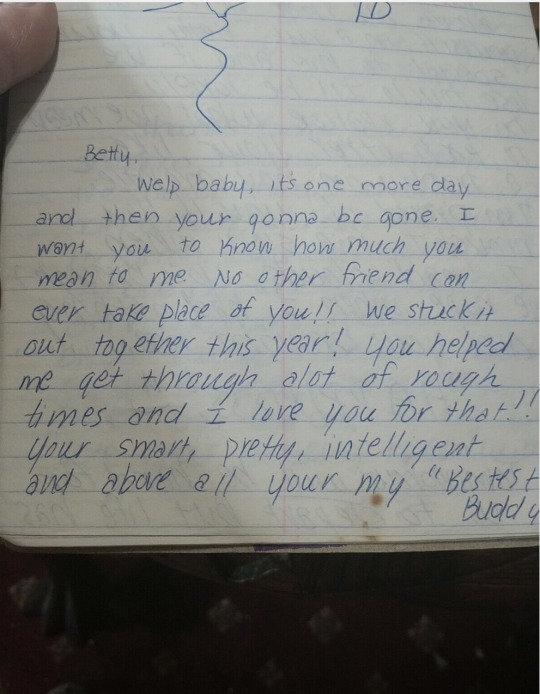 Betty,
Welp baby, it's one more day
and then your gonna be gone. I
want you to know how much you
mean to me. No other friend can
ever take place of you!! We stuck it
out together this year! You helped
me get through alot of rough
times and I love you for that!!
Your smart, pretty, intelligent
and above all your my "Bestest
Buddy